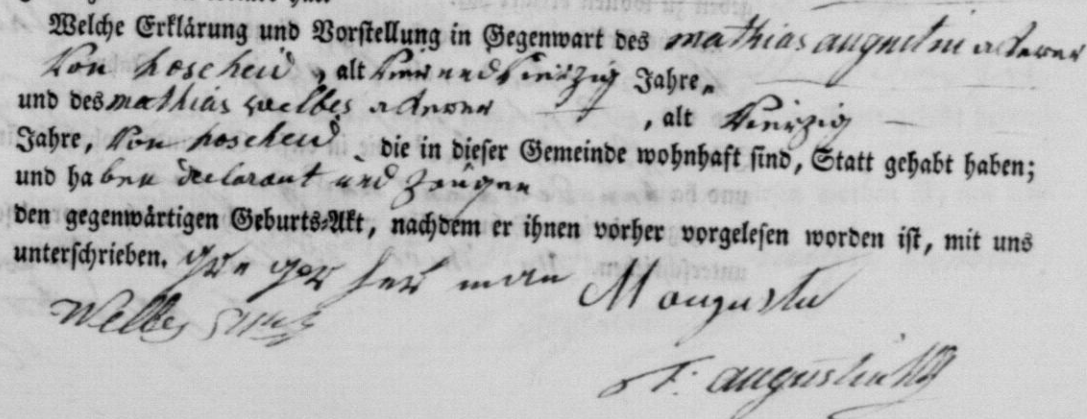 Welche Erklärung und Vorstellung in Gegenwart des mathias augustin akerer
von hoscheid, alt vier und vierzig Jahre,
und des mathias welbes akerer, alt vierzig
Jahre, von hoscheid, die in dieser Gemeinde wohnhaft sind, Statt gehabt haben;
und haben declarant und zeugen
den gegenwärtigen Geburts-Akt, nachdem er ihnen vorher vorgelesen worden ist, mit uns
unterschrieben. her man M augustin
Welbes
augustin